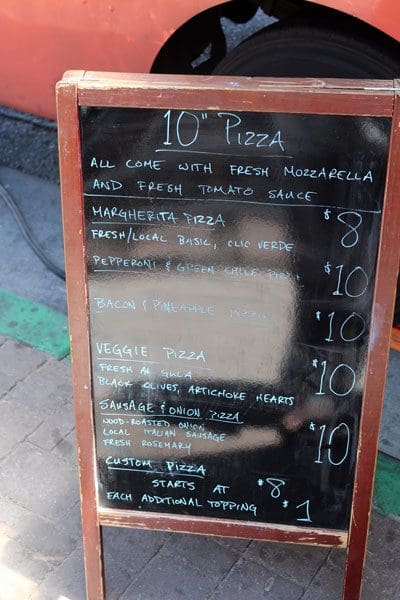 10" PIZZA
ALL COME WITH FRESH MOZZARELLA
AND FRESH TOMATO SAUCE
MARGHERITA PIZZA $8
FRESH/LOCAL BASIL, OLIO VERDE
PEPPERONI & GREEN CHILE PIZZA $10
BACON & PINEAPPLE PIZZA $10
VEGGIE PIZZA $10
FRESH ARUGULA
BLACK OLIVES, ARTICHOKE HEARTS
SAUSAGE & ONION PIZZA $10
WOOD-ROASTED ONION
LOCAL ITALIAN SAUSAGE
FRESH ROSEMARY
CUSTOM PIZZA
STARTS AT $8
EACH ADDITIONAL TOPPING $1